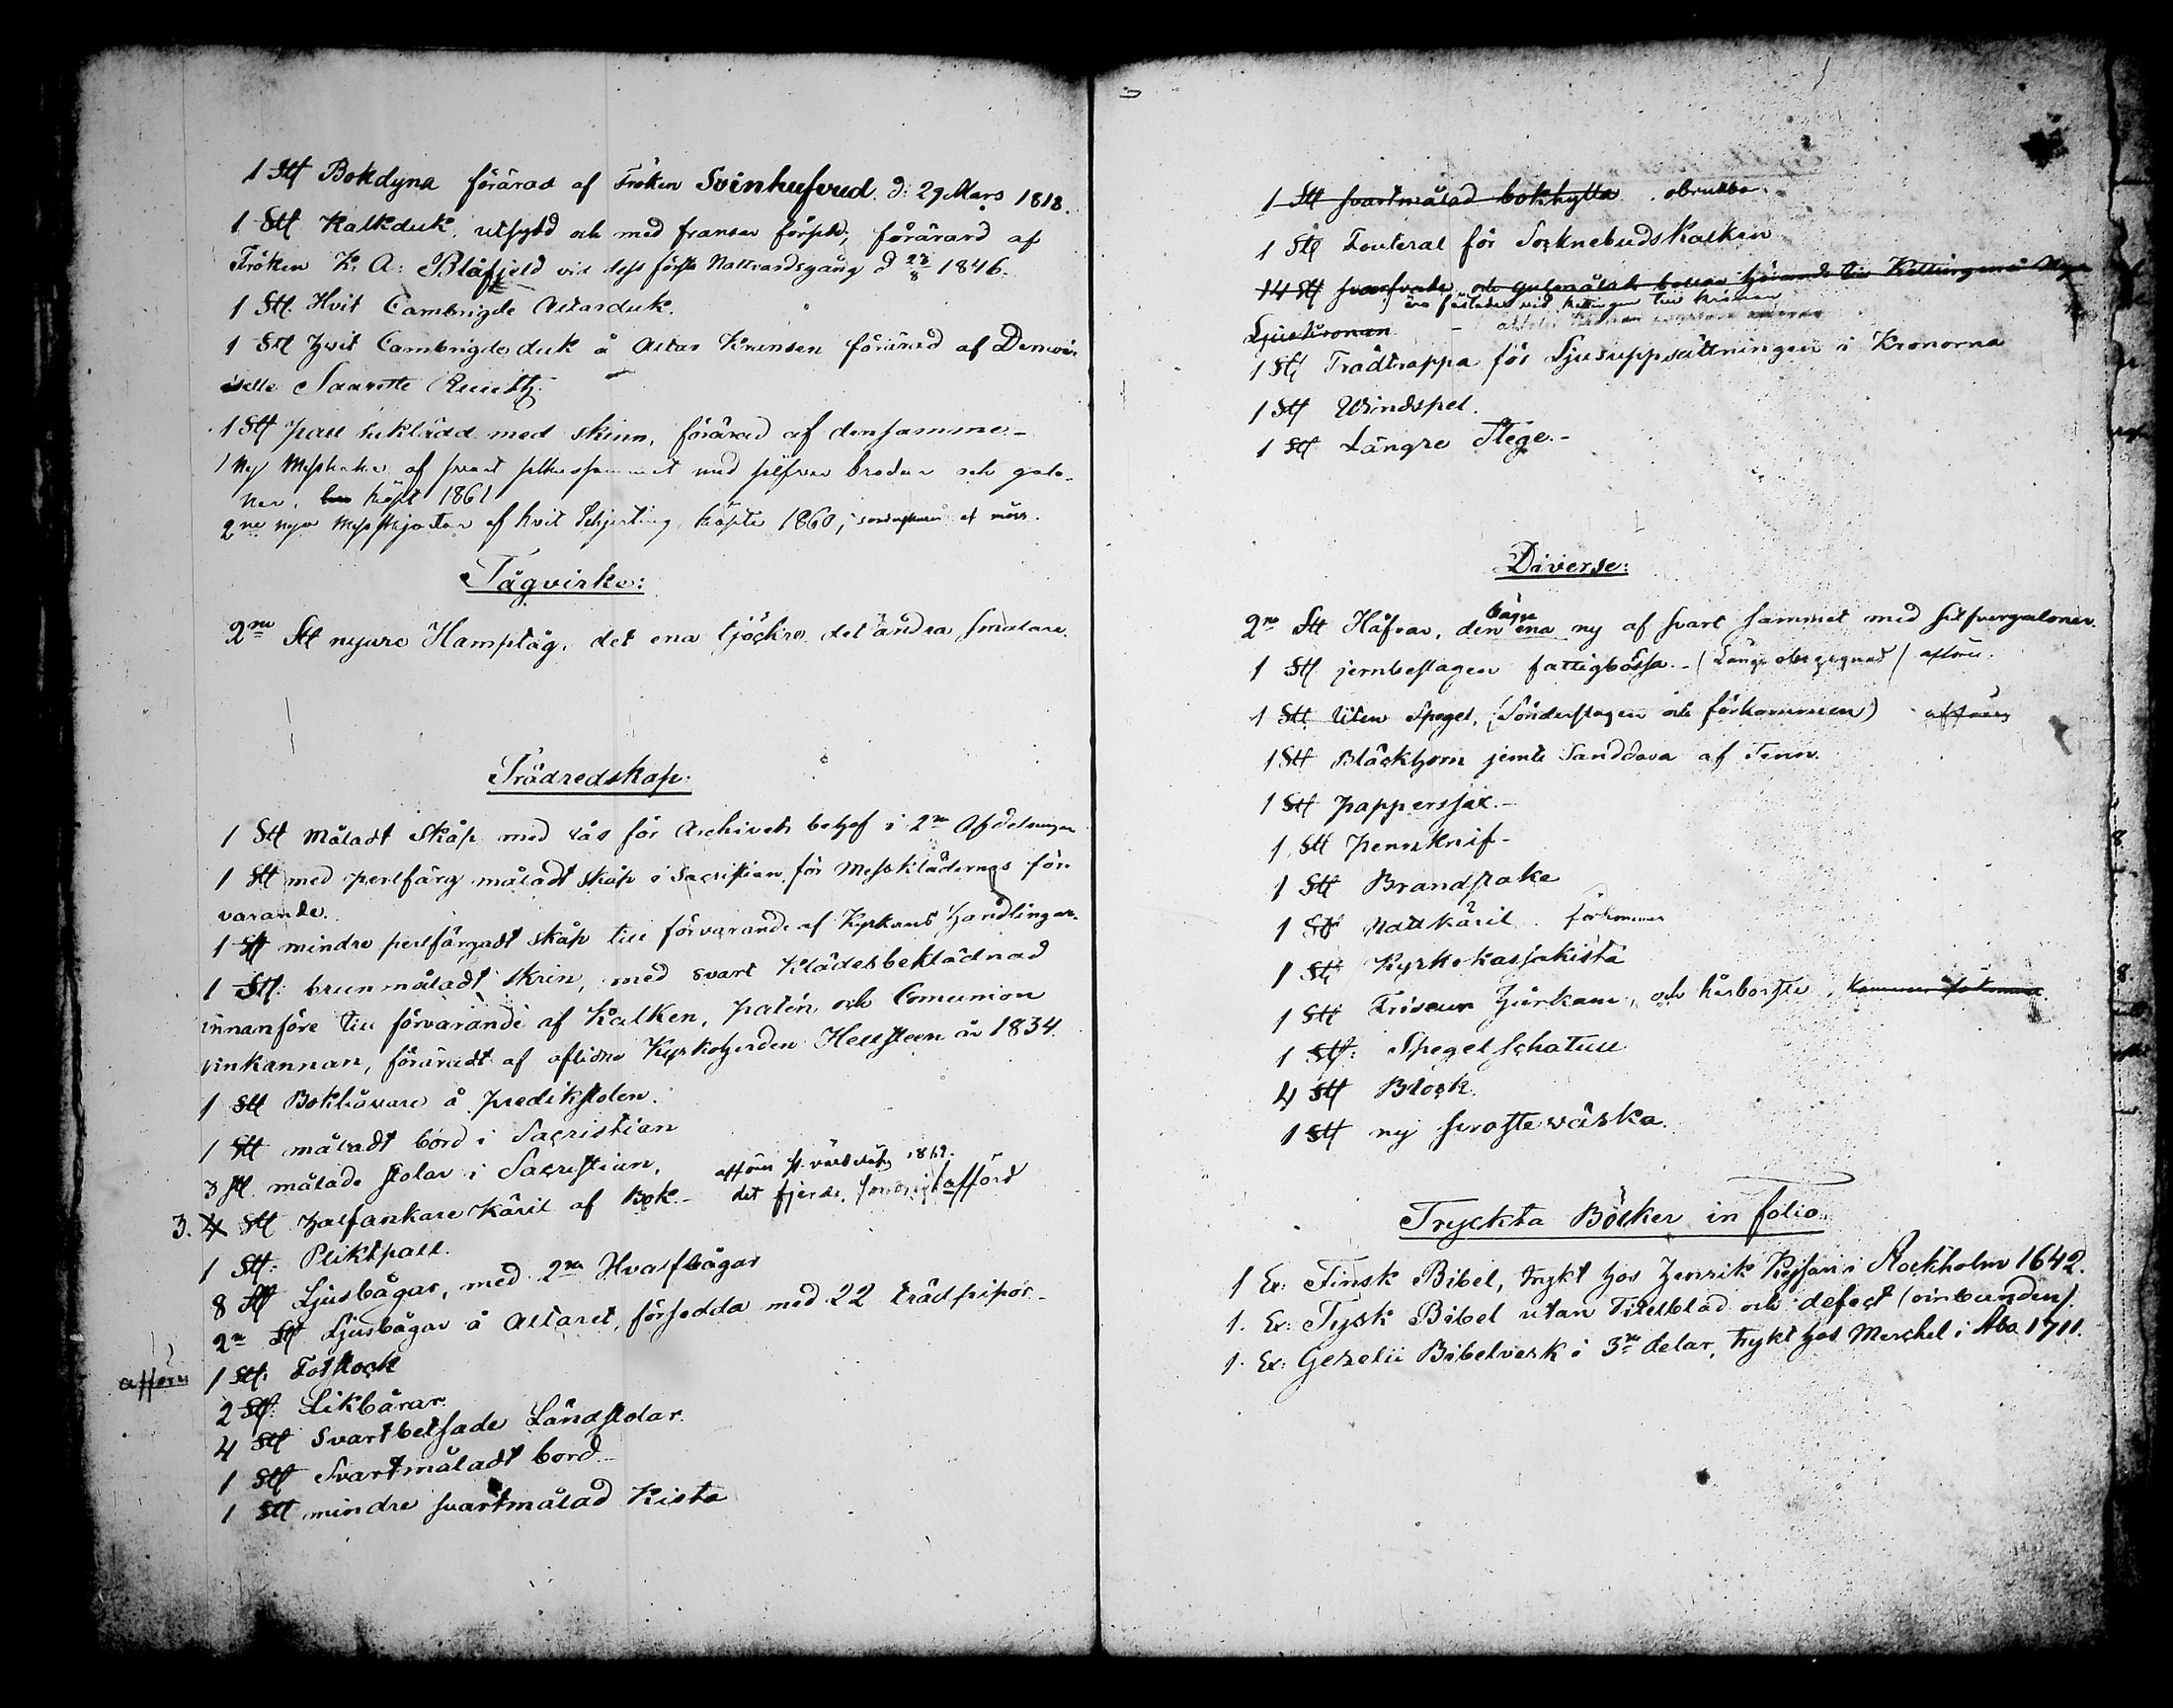 1 St Bokdyna förärad af Fröken Svinhufvud d: 29 Mars 1818.
1 St Kalkduk, utsydd och med fransar försedd, förärad af
Fröken K. A: Blåfjeld vid dess första Nattvardsgång d 23/8 1846.
1 St. Hvit Cambrigde Altarduk.
1 St Hvit Cambrigde duk å Altar Kransen förärad af Demoi-
selle
1 St pall beklädd med skinn, förärad af densamme.-
1 Ny Messhake af svart silkessammet med silfver brodur och galo-
ner, köpt 1861
2ne nya Messkjortor af hvit Schjerting, köpte 1860,
Tågvirke:
2ne St nyare Hamptåg, det ena tjöckre det andra smalare.
Trädredskap:
1 St Måladt Skåp med lås för Archivets behof i 2ne Afdelningar
1 St med perlfärg måladt skåp i Sacristian, för Messklädernas för-
varande.
1 St mindre perlfärgadt skåp till förvarande af Kyrkans Handlingar.
1 St: brunmåladt skrin, med svart Klädesbeklädnad
innanföre till förvarande af Kalken, patén och Comunion
vinkannan, föräradt af aflidne Kyrkoherden Hellsteen år 1834.
1 St Boklåvare å predikstolen.
1 St måladt bord i Sacristian
3 St. målade stolar i Sacristian, afföres 1862.
3. 4 St Halfankare Käril af Bok.- det fjerde, afförd
1 St: Pliktpall.
8 St Ljusbågar, med 2ne Hvalfbågar
2ne St Ljusbågar å Altaret, försedda med 22 trädpipor.-
afföres 1 St: Fotstock
2 St: Likbårar.
4 St Svartbetsade Länstolar.
1 St Svartmåladt bord.-
1 St mindre svartmålad Kista
1 St svartmålad bokhylla. obrukbar.
1 St Fouteral för SocknebudsKalken
14 St svarfvade och gulmålade bollar hörande till Kettingarna
äro fästade vid kettingen till kronan
Ljuskronan
1 St Trädtrappa för Ljusuppsättningen i Kronorna
1 St Windspel.
1 St Längre Stege.-
Diverse:
bägge
2ne St Håfvar, den ena ny af svart sammet med silfvergaloner.
1 St jernbeslagen fattigbössa.- (Länge obegagnad) afföres.
1 St liten Spegel, (Sönderslagen och förkommen) afföres
1 St Bläckhorn jemte Sanddosa af Tenn.
1 St pappersax.-
1 St pennknif-
1 St Brandstake
1 St Nattkäril. förkommen
1 St Kyrkokassakista
1 St Friseur Hårkam, och hårborste,
1 St: Spegelschatull
4 St Block.
1 St ny Profteväska.
Tryckta Böcker in folio.
1 Ex: Finsk Bibel, trykt hos Henrik Kejsari i Stockholm 1642.
1. Ex: Tysk Bibel utan Titelblad och defect (oinbunden).
1. Ex: Gezelii Bibelverk i 3ne delar, trykt hos Merckel i Åbo 1711.